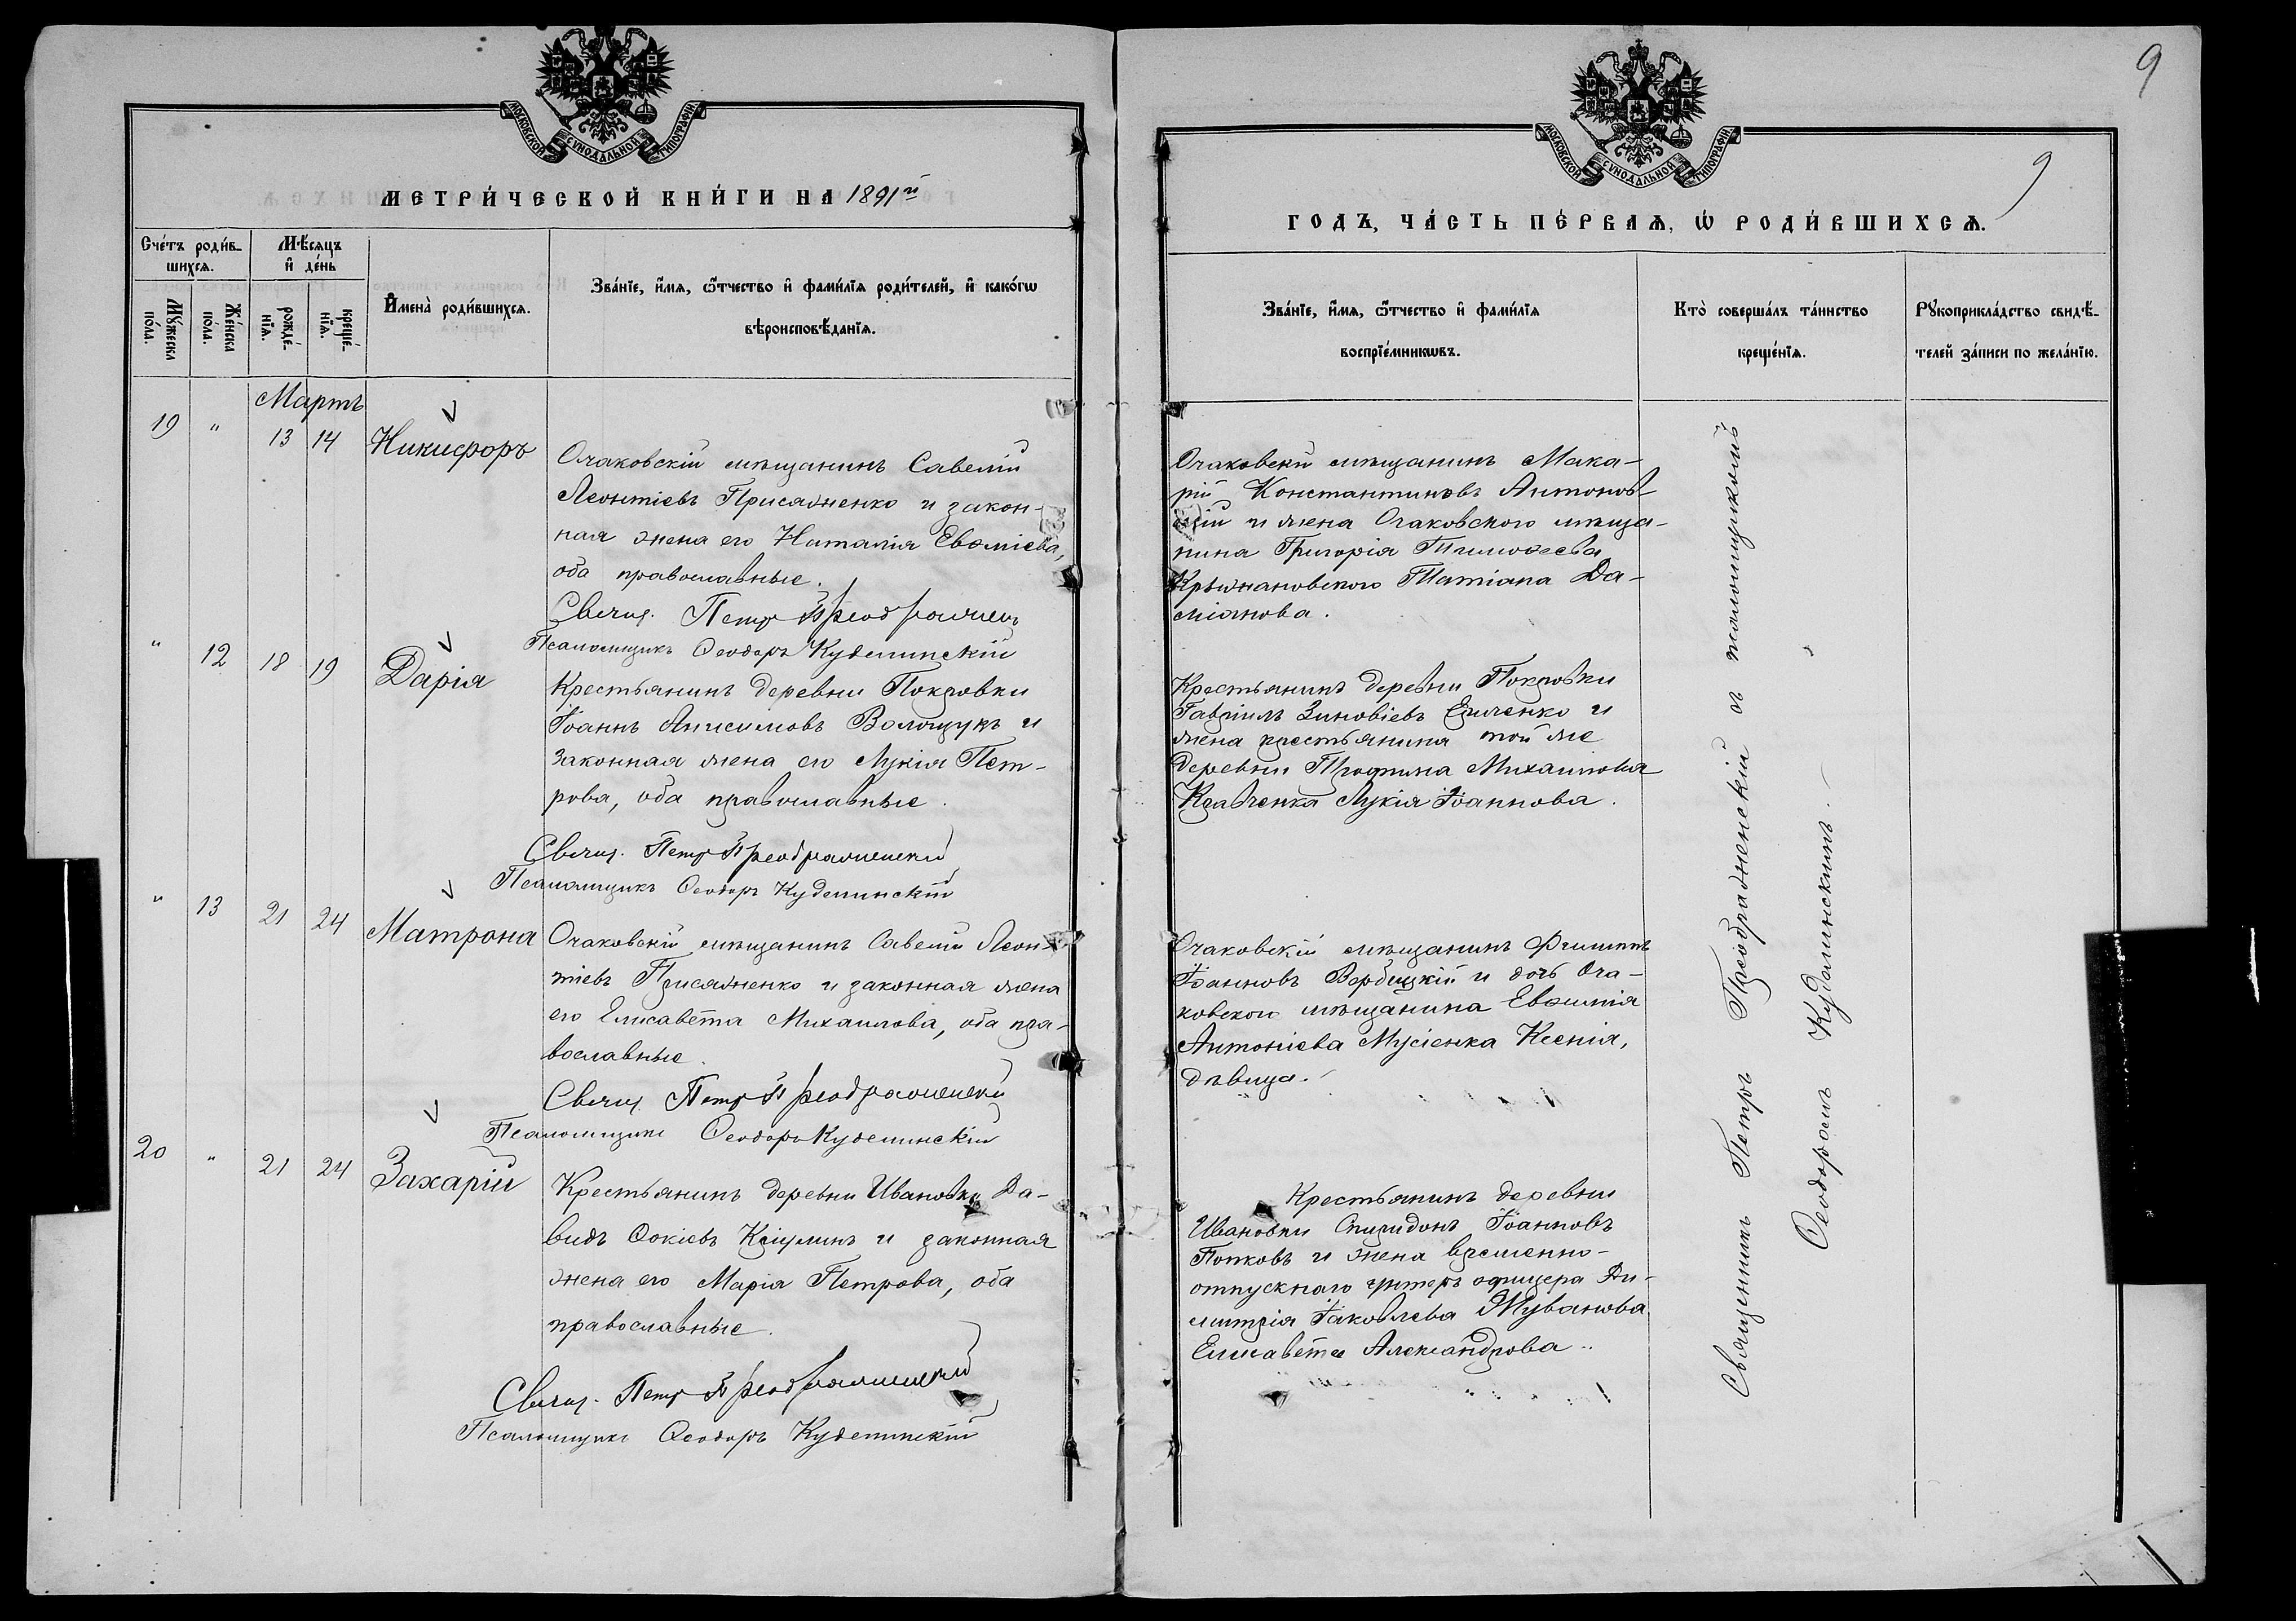 МОСКОВСКОЙ СѴНОДАЛЬНОЙ ТИПОГРАФІИ
МЕТРИ́ЧЕСКОЙ КНИ́ГИ НА 1891й
Сче́тъ роди́в-
шихся.
Мѣ́сяцъ
и де́нь
Имена̀ роди́вшихся.
Зва́нїе, и́мя, ѻ́тчество и фами́лїя роди́телей, и како́гѡ
вѣроисповѣ́данїя.
Мꙋ́жеска
по́ла.
Же́нска
по́ла.
рожде́-
нїя.
креще́-
нїя.
Мартъ
19 " 13 14 Никифоръ
Очаковскій мѣщанинъ Савелій
Леонтіевъ Присяжненко и закон-
ная жена его Наталія Евѳиміева,
оба православные.
Свящ. Петръ Преображенскій
Псаломщикъ Ѳеодоръ Куделинскій
" 12 18 19 Дарія
Крестьянинъ деревни Покровки
Іоаннъ Анисимовъ Волощукъ и
законная жена его Лукія Пет-
рова, оба православные.
Свящ. Петръ Преображенскій
Псаломщикъ Ѳеодоръ Куделинскій
" 13 21 24 Матрона
Очаковскій мѣщанинъ Савелій Леон-
тіевъ Присяжненко и законная жена
его Елисавета Михаилова, оба пра-
вославные.
Свящ. Петръ Преображенскій
Псаломщикъ Ѳеодоръ Куделинскій
20 " 21 24 Захарій
Крестьянинъ деревни Ивановки Да-
видъ Ѳокіевъ и законная
жена его Марія Петрова, оба
православные.
Свящ. Петръ Преображенскій
Псаломщикъ Ѳеодоръ Куделинскій
9
МОСКОВСКОЙ СѴНОДАЛЬНОЙ ТИПОГРАФІИ
9
ГОДЪ, ЧА́СТЬ ПЕ́РВАЯ, Ѡ РОДИ́ВШИХСЯ.
Зва́нїе, и́мя, ѻ́тчество и фами́лїя
воспрїе́мникѡвъ.
Кто̀ соверша́лъ та́инство
креще́нїя.
Рꙋкоприкла́дство свидѣ́-
телей за́писи по жела́нїю.
Очаковскій мѣщанинъ Мака-
рій Константиновъ Антонов-
скій и жена Очаковского мѣща-
нина Григорія Тимоѳеева
Крыжановского Татіана Да-
міанова.
Крестьянинъ деревни Покровки
Гавріилъ Зиновіевъ и
жена крестьянина той же
деревни Трофима Михаилова
Кравченка Лукія Іоаннова.
Очаковскій мѣщанинъ Филиппъ
Іоанновъ Вербицкій и дочь Оча-
ковского мѣщанина Евѳимія
Антоніева Мусіенка Ксенія,
дѣвица.
Крестьянинъ деревни
Ивановки Спиридонъ Іоанновъ
Попковъ и жена временно-
отпускного унтеръ офицера Ди-
митрія Іаковлева Жуванова
Елисавета Александрова.
Священникъ Петръ Преображенскій съ псаломщикомъ
Ѳеодоромъ Куделинскимъ.